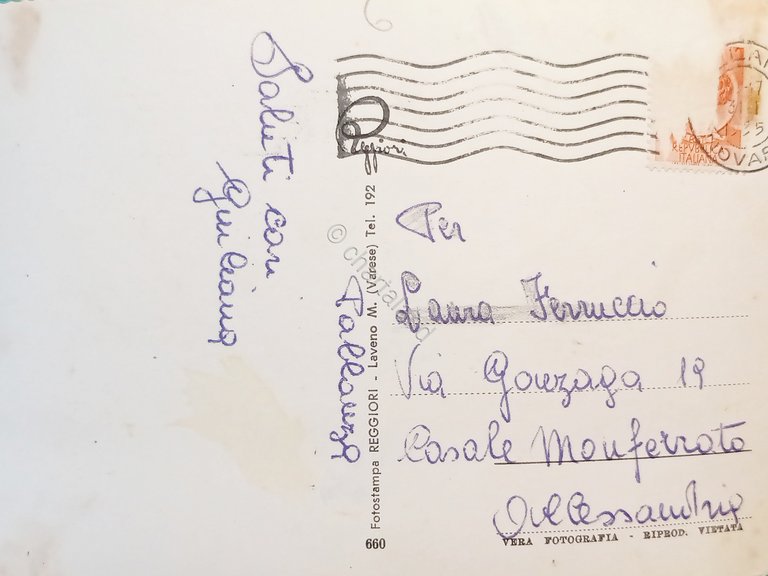 Saluti cari
Giuliana
Pallanza
Reggiori
Fotostampa REGGIORI - Laveno M. (Varese) Tel. 192
660
© chartaland
REPUBBLICA
ITALIANA
NOVARA
Per
Laura Ferruccio
Via Gonzaga 19
Casale Monferrato
Alessandria
VERA FOTOGRAFIA - RIPROD. VIETATA